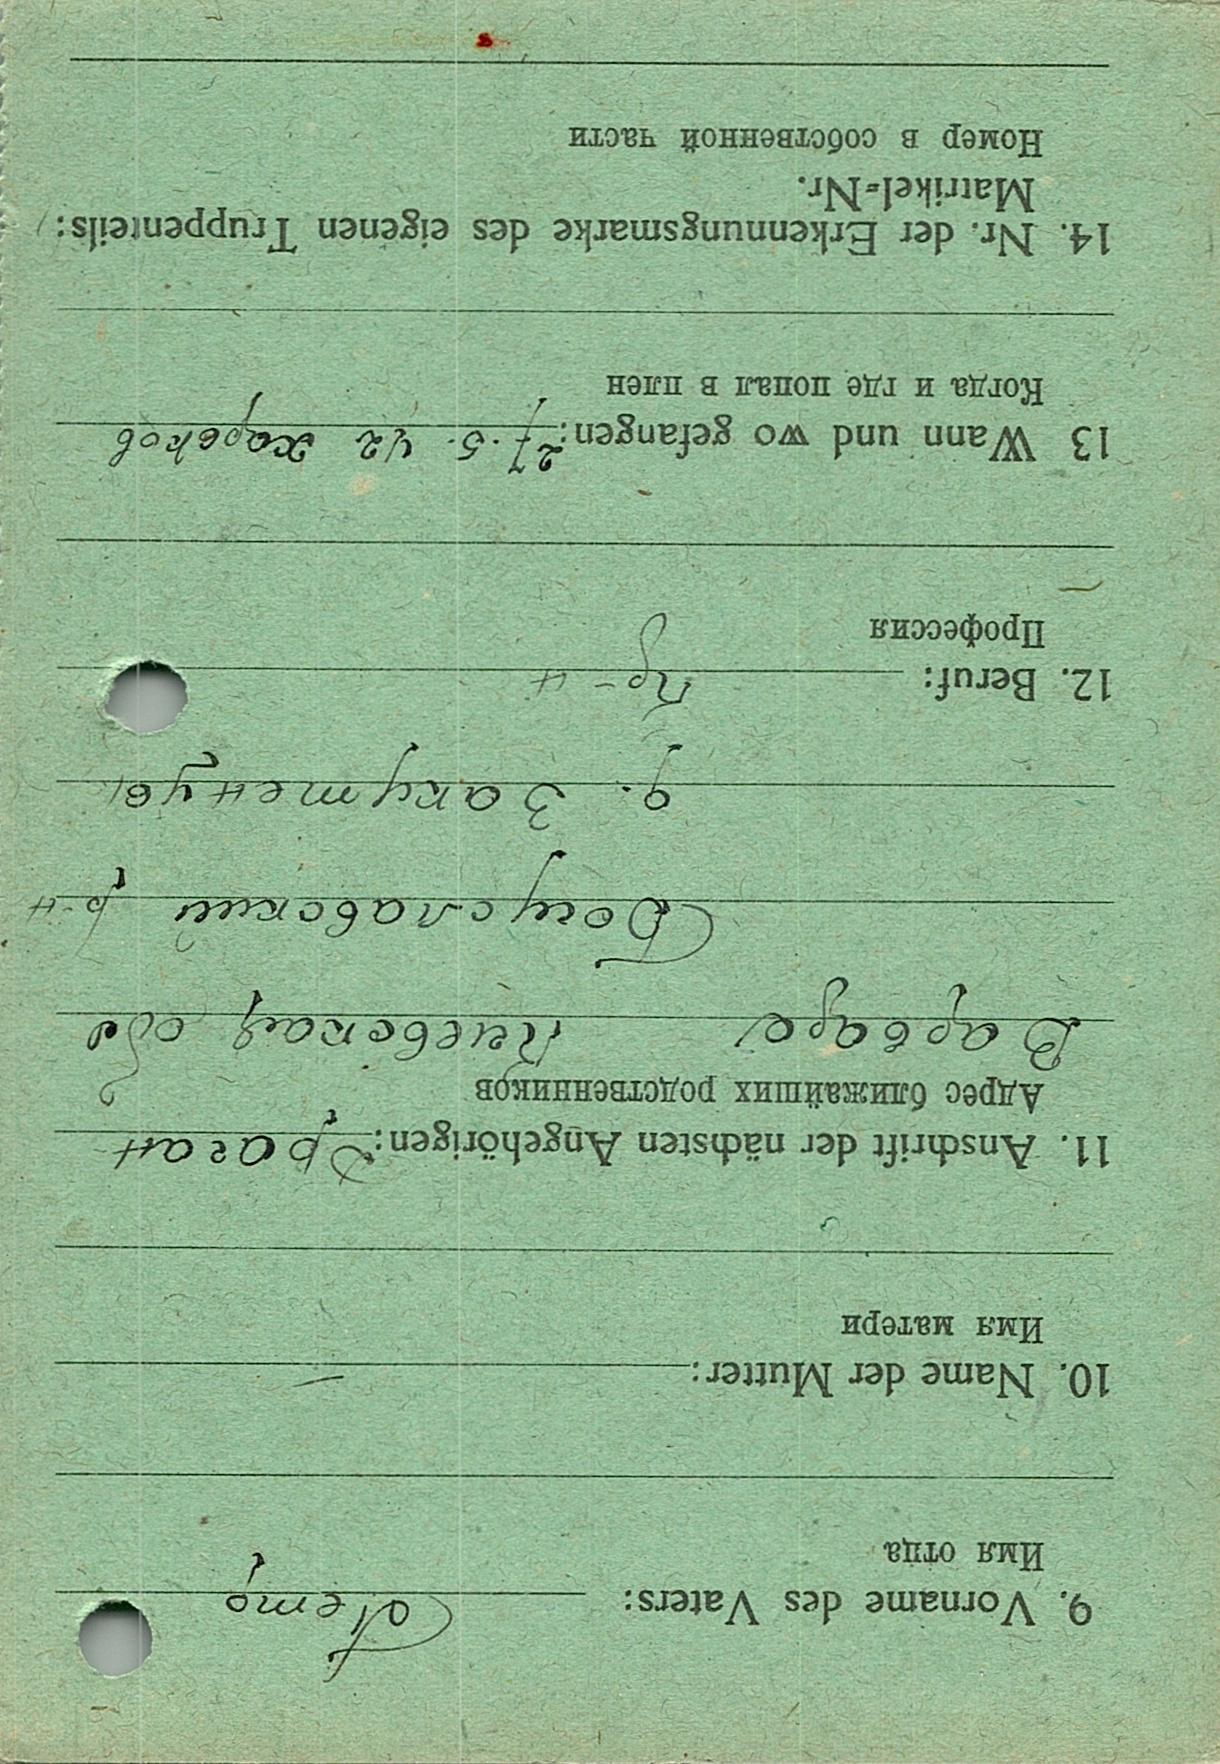 9. Vorname des Vaters: Петр
Имя отца
10. Name der Mutter: —
Имя матери
11. Anschrift der nächsten Angehörigen: Драган
Адрес ближайших родственников
Варвара Киевская обл
Богуславский р-н
д. Закутенцы
12. Beruf:
Профессия
13 Wann und wo gefangen: 27.5.42 Харьков
Когда и где попал в плен
14. Nr. der Erkennungsmarke des eigenen Truppenteils:
Matrikel-Nr.
Номер в собственной части